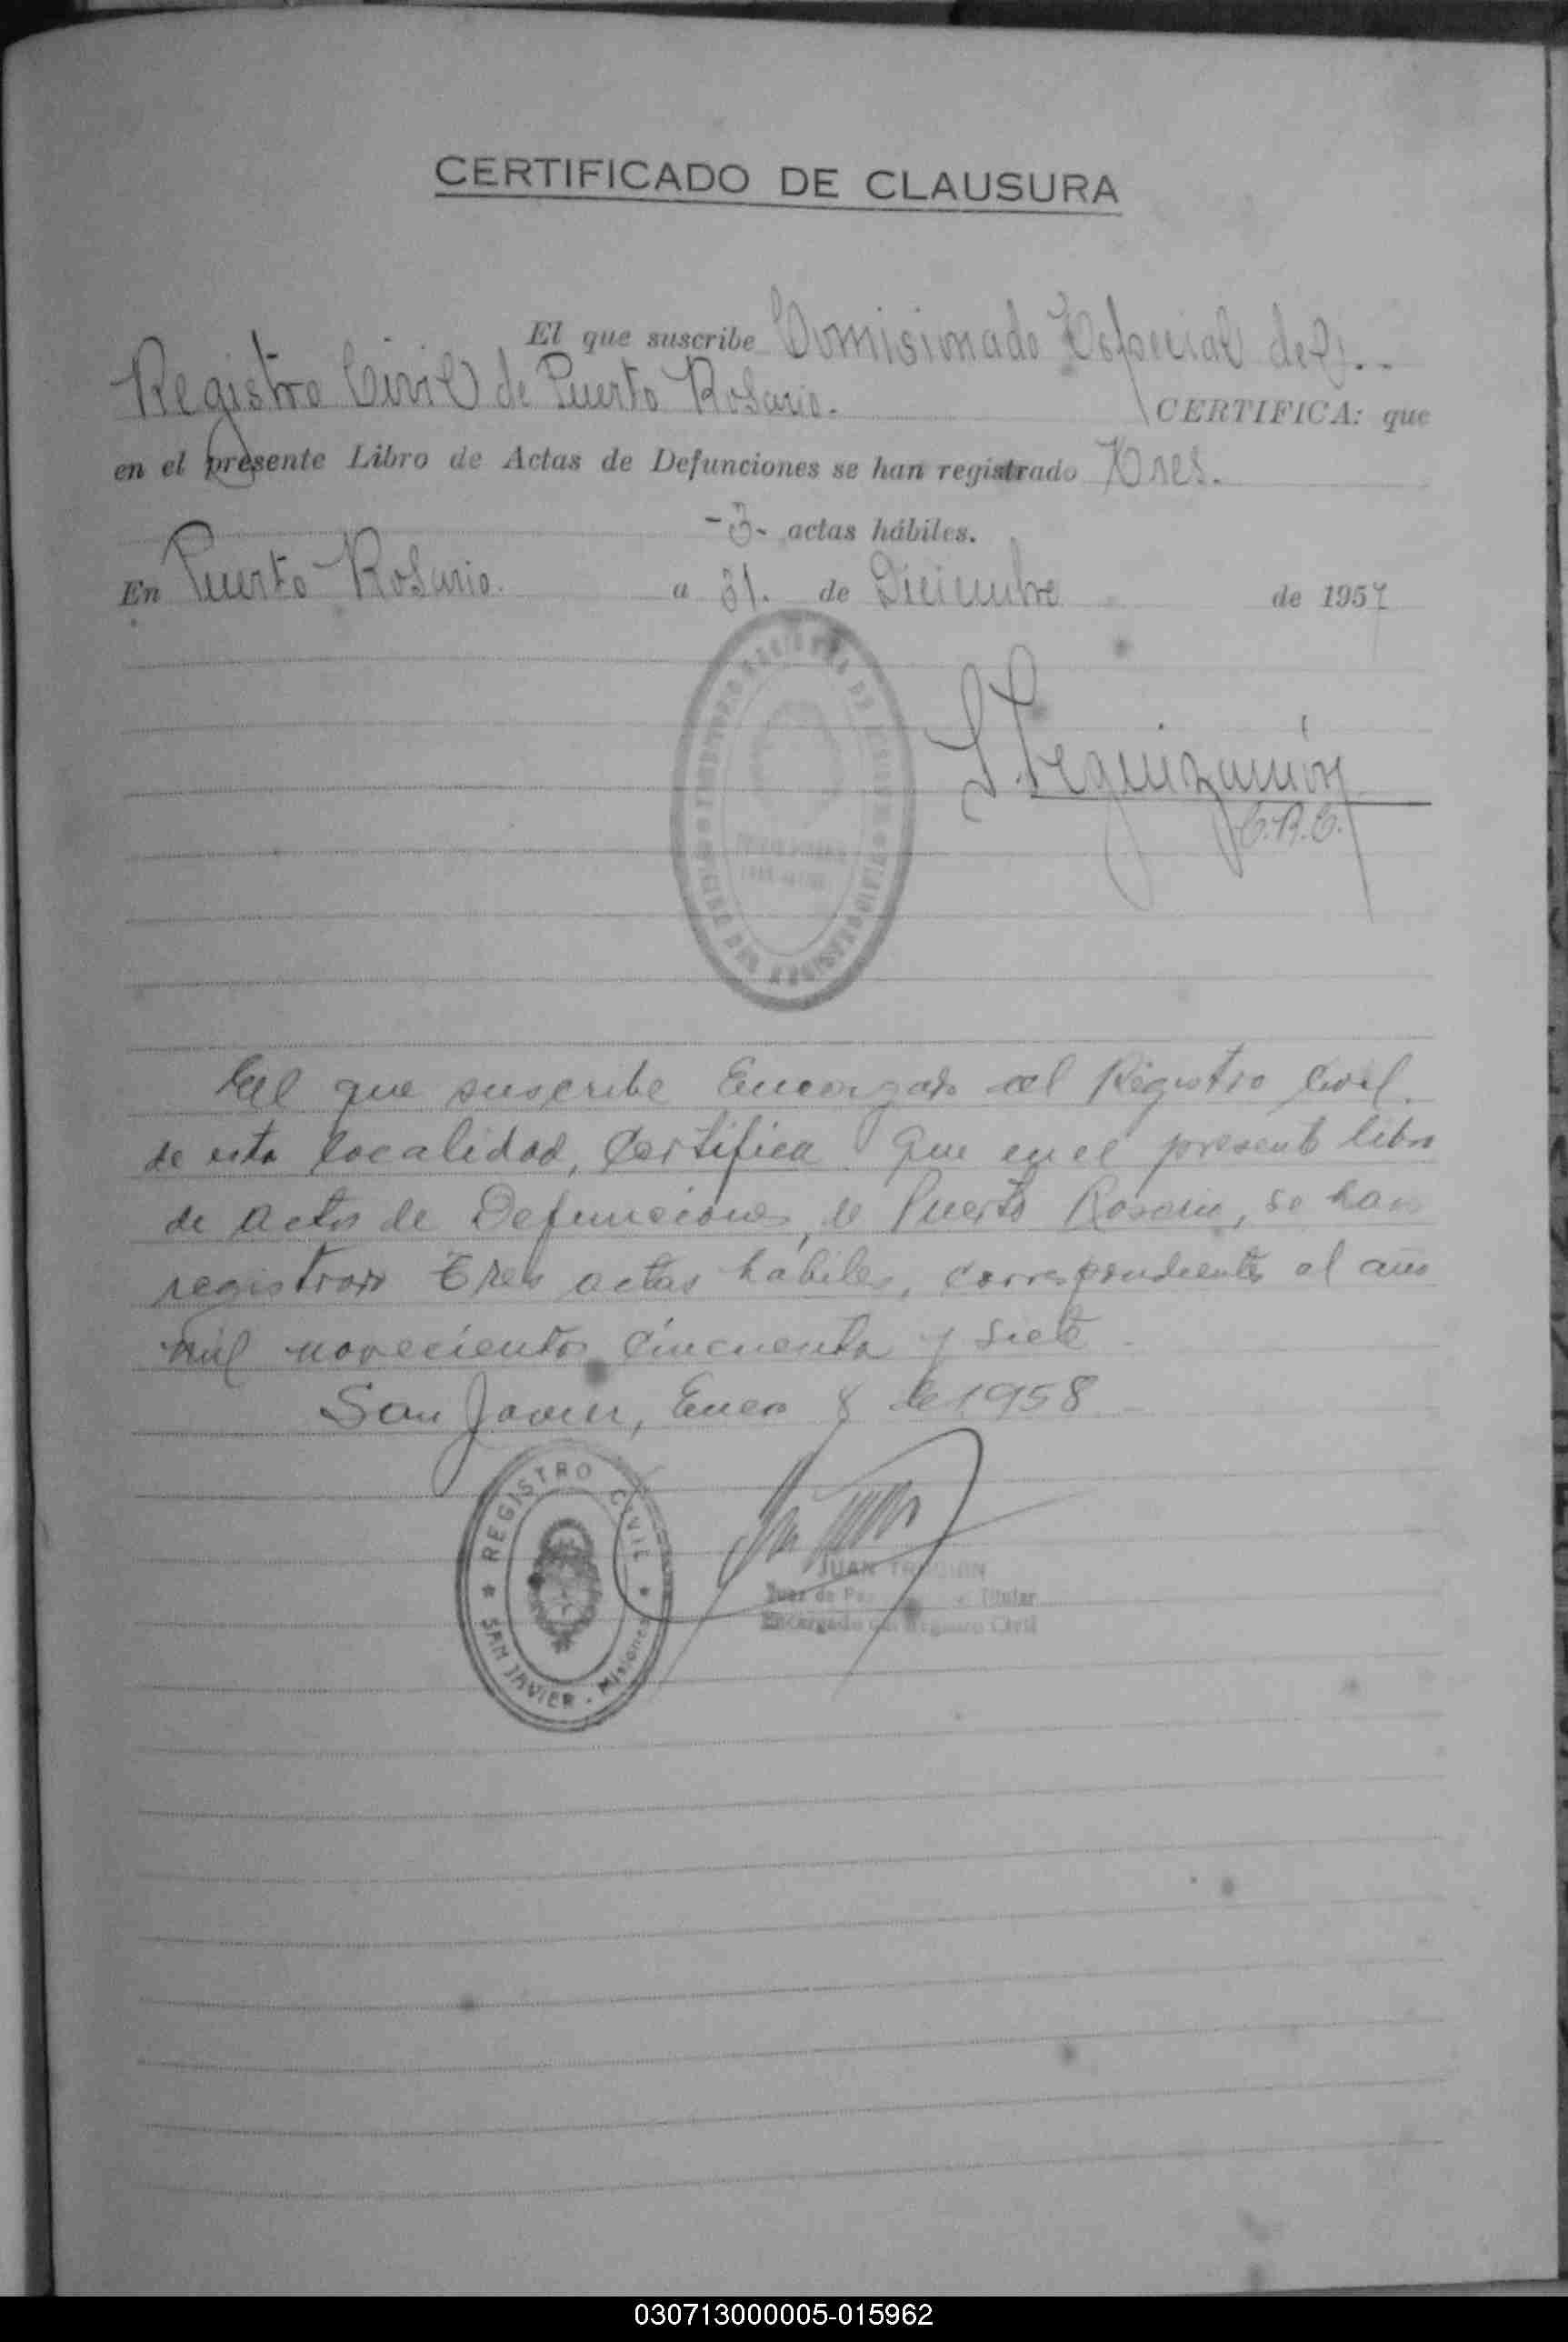 CERTIFICADO DE CLAUSURA
El que suscribe Comisionado Especial del
Registro Civil de Puerto Rosario. CERTIFICA: que
en el presente Libro de Actas de Defunciones se han registrado Tres.
-3- actas hábiles.
En Puerto Rosario. a 31. de Diciembre de 1957
L. Leguizamón
C.R.C.
El que suscribe Encargado del Registro Civil
de esta localidad, Certifica que en el presente libro
de actas de Defunciones, de Puerto Rosario, se han
registrado tres actas habiles, correspondientes al año
mil novecientos cincuenta y siete
San Javier, Enero 8 de 1958
REGISTRO CIVIL
SAN JAVIER - Misiones
JUAN
Juez de Paz Titular
Encargado del Registro Civil
030713000005-015962